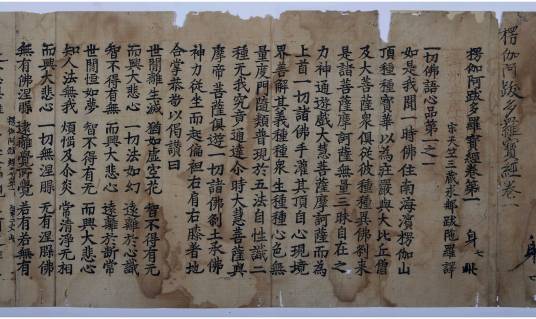 楞伽阿跋多羅寶經卷一
楞伽阿跋多羅寶經卷第一 身 七
宋天竺三藏求那跋陀羅譯
一切佛語心品第一之一
如是我聞一時佛住南海濱楞伽山
頂種種寶華以為莊嚴與大比丘僧
及大菩薩衆俱從彼種種異佛剎来
是諸菩薩摩訶薩無量三昧自在之
力神通遊戲大慧菩薩摩訶薩而為
上首一切諸佛手灌其頂自心現境
界善解其義種種衆生種種心色無
量度門隨類普現於五法自性識二
種无我究竟通達尒時大慧菩薩與
摩帝菩薩俱遊一切諸佛剎土承佛
神力從坐而起偏袒右肩右膝著地
合掌恭敬以偈讚曰
世間離生滅 猶如虛空花 智不得有无
而興大悲心 一切法如幻 遠離於心識
智不得有無 而興大悲心 遠離於斷常
世間恒如夢 智不得有无 而興大悲心
知人法無我 煩惱及尒炎 常清淨无相
而興大悲心 一切無涅槃 无有涅槃佛
無有佛涅槃 遠離覺所覺 若有若無有